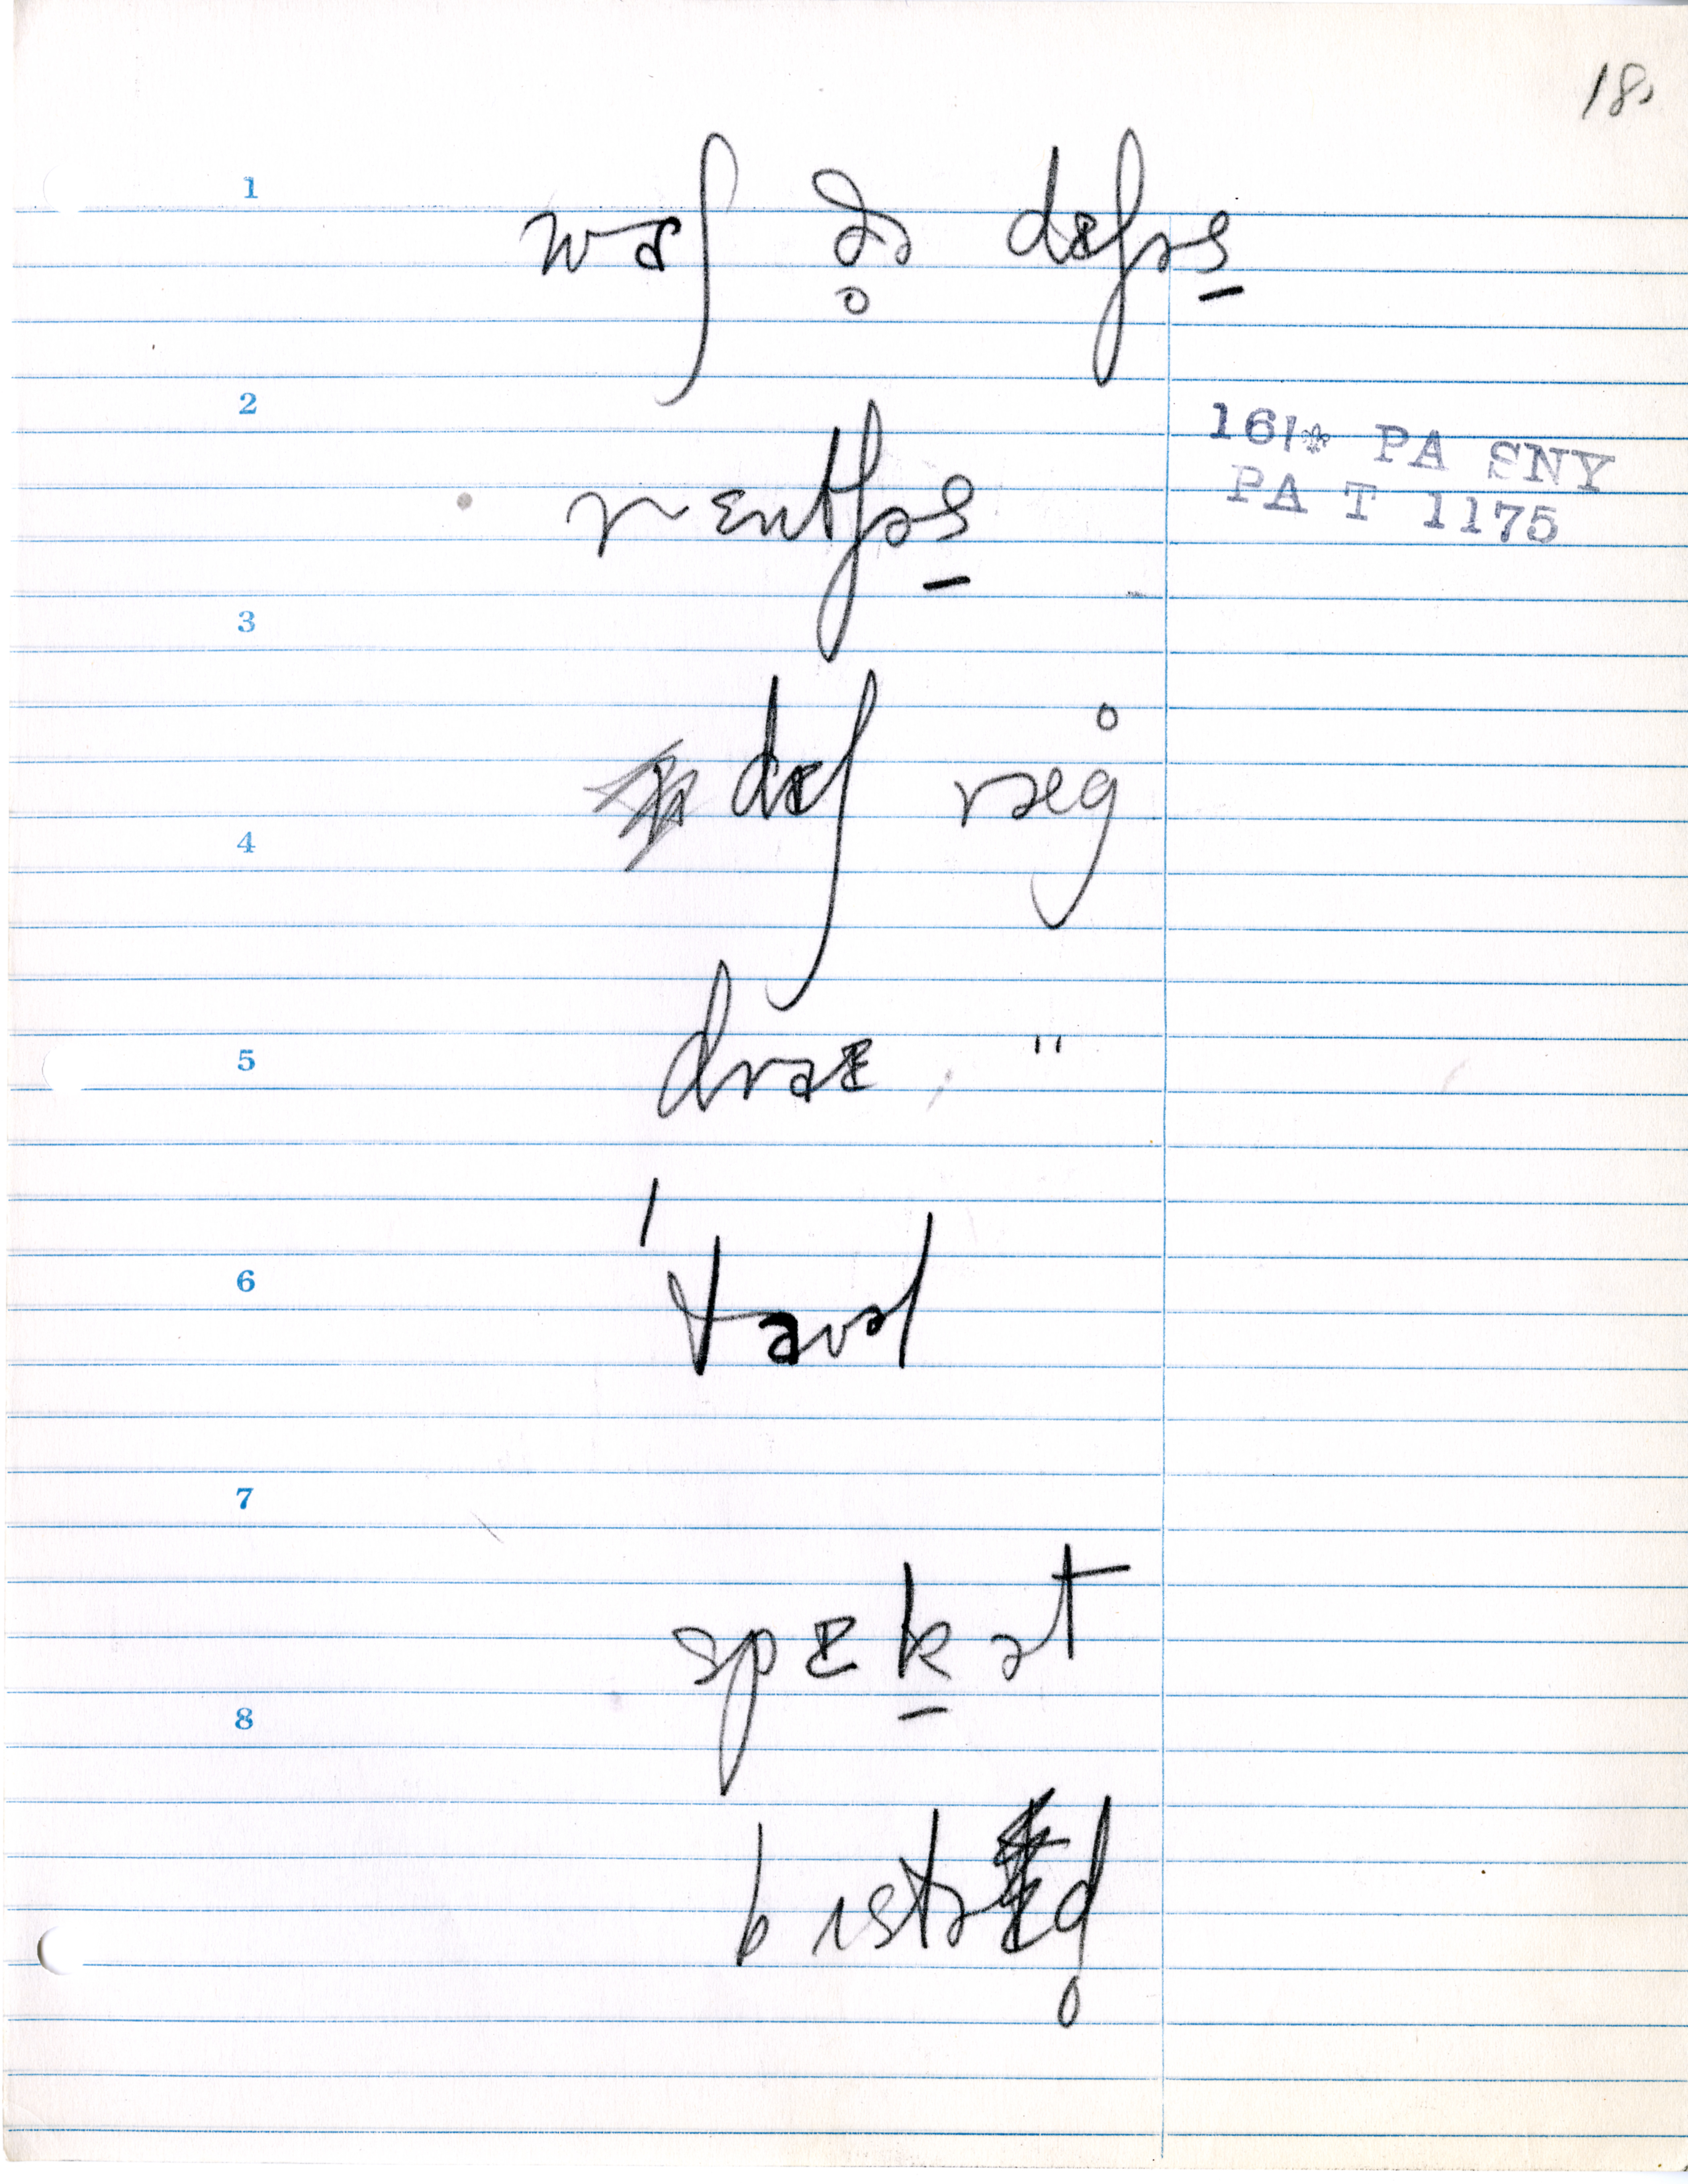 18.
1
waʃ ðə̥ dɪʃəs̱
2
16/* PA SNY
PA T 1175
rɛntʃəs̱
3
dɪʃ ræg̊
4
draɪ "
5
6
ˈtavəl
7
spɪḵət
8
bɪstɪd̥